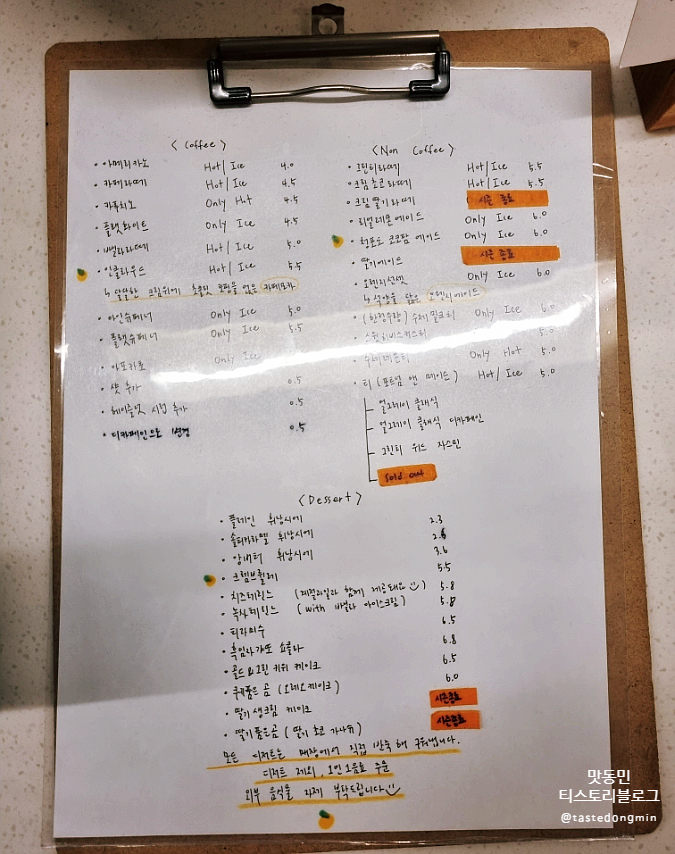 < Coffee >
• 아메리카노 Hot / Ice 4.0
• 카페라떼 Hot / Ice 4.5
• 카푸치노 Only Hot 4.5
• 플랫화이트 Only Ice 4.5
• 바닐라라떼 Hot / Ice 5.0
• 인클라우드 Hot / Ice 5.5
↳ 달달한 크림위에 초콜릿 토핑을 얹은 카페모카
• 아인슈페너 Only Ice 5.0
• 플랫슈페너 Only Ice 5.5
• 아포가토 Only Ice
• 샷 추가 0.5
• 헤이즐넛 시럽 추가 0.5
• 디카페인으로 변경 0.5
< Non Coffee >
• 그린티라떼 Hot / Ice 5.5
• 크림초코라떼 Hot / Ice 5.5
• 크림딸기라떼 시즌 종료
• 리얼레몬에이드 Only Ice 6.0
• 청포도 코코팜 에이드 Only Ice 6.0
• 딸기에이드 시즌 종료
• 오렌지선셋 Only Ice 6.0
↳ 석양을 닮은 오렌지에이드
• (한정수량) 수제밀크티 Only Ice 6.0
5.0
• 수제레몬티 Only Hot 5.0
• 티 (포트넘 앤 메이슨) Hot / Ice 5.0
얼그레이 클래식
얼그레이 클래식 디카페인
그린티 위드 자스민
Sold out
< Dessert >
• 플레인 휘낭시에 2.3
• 솔티카라멜 휘낭시에 2.6
• 앙버터 휘낭시에 3.6
• 크렘브륄레 5.5
• 치즈테린느 (제철과일과 함께 제공돼요) 5.8
• 녹차테린느 (with 바닐라 아이스크림) 5.8
• 티라미수 6.5
• 흑임자가또 쇼콜라 6.8
• 골드&그린 키위 케이크 6.5
• 쿠키품은 곰 (오레오케이크) 6.0
• 딸기 생크림 케이크 시즌종료
• 딸기 품은곰 (딸기 초코 가나슈) 시즌종료
모든 디저트는 매장에서 직접 반죽해 구워냅니다.
디저트 제외, 1인 1음료 주문
외부 음식물 자제 부탁드립니다
맛동민
티스토리블로그
@tastedongmin